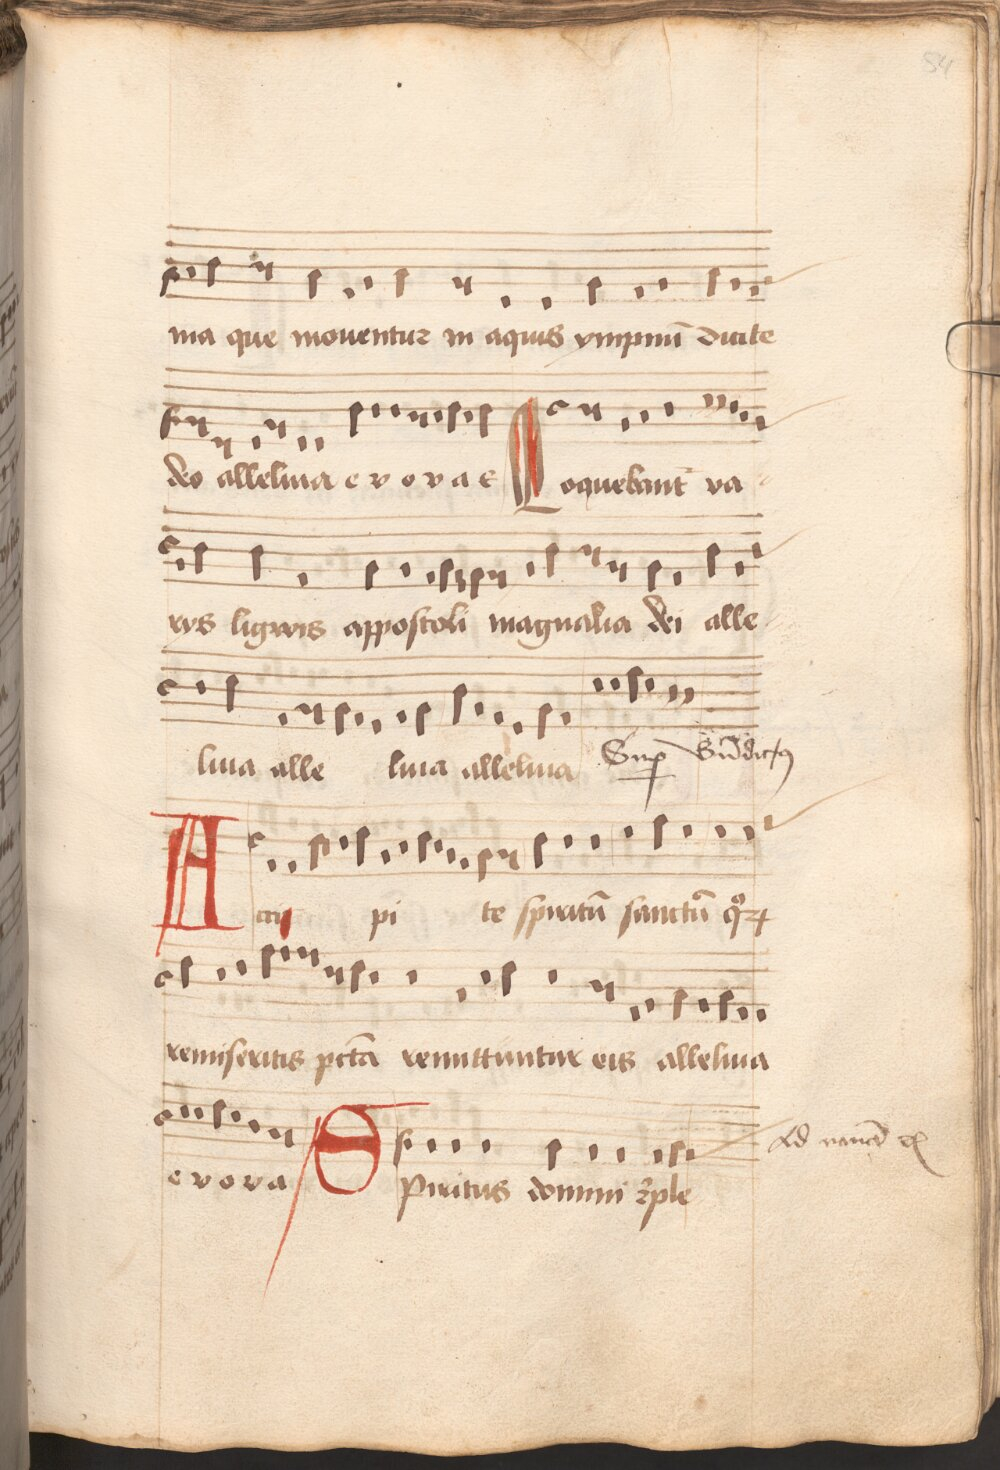 84
ma que mouentur in aquis ympnū dicite
deo alleluia e v o v a e Loquebant̄ va
rys ligwis appostoli magnalia dei alle
luia alle luia alleluia Sup
Accipi te spiritū sanctū
remiseritis pctā remittuntur eis alleluia
e v o v a Spiritus domini rple
Ad